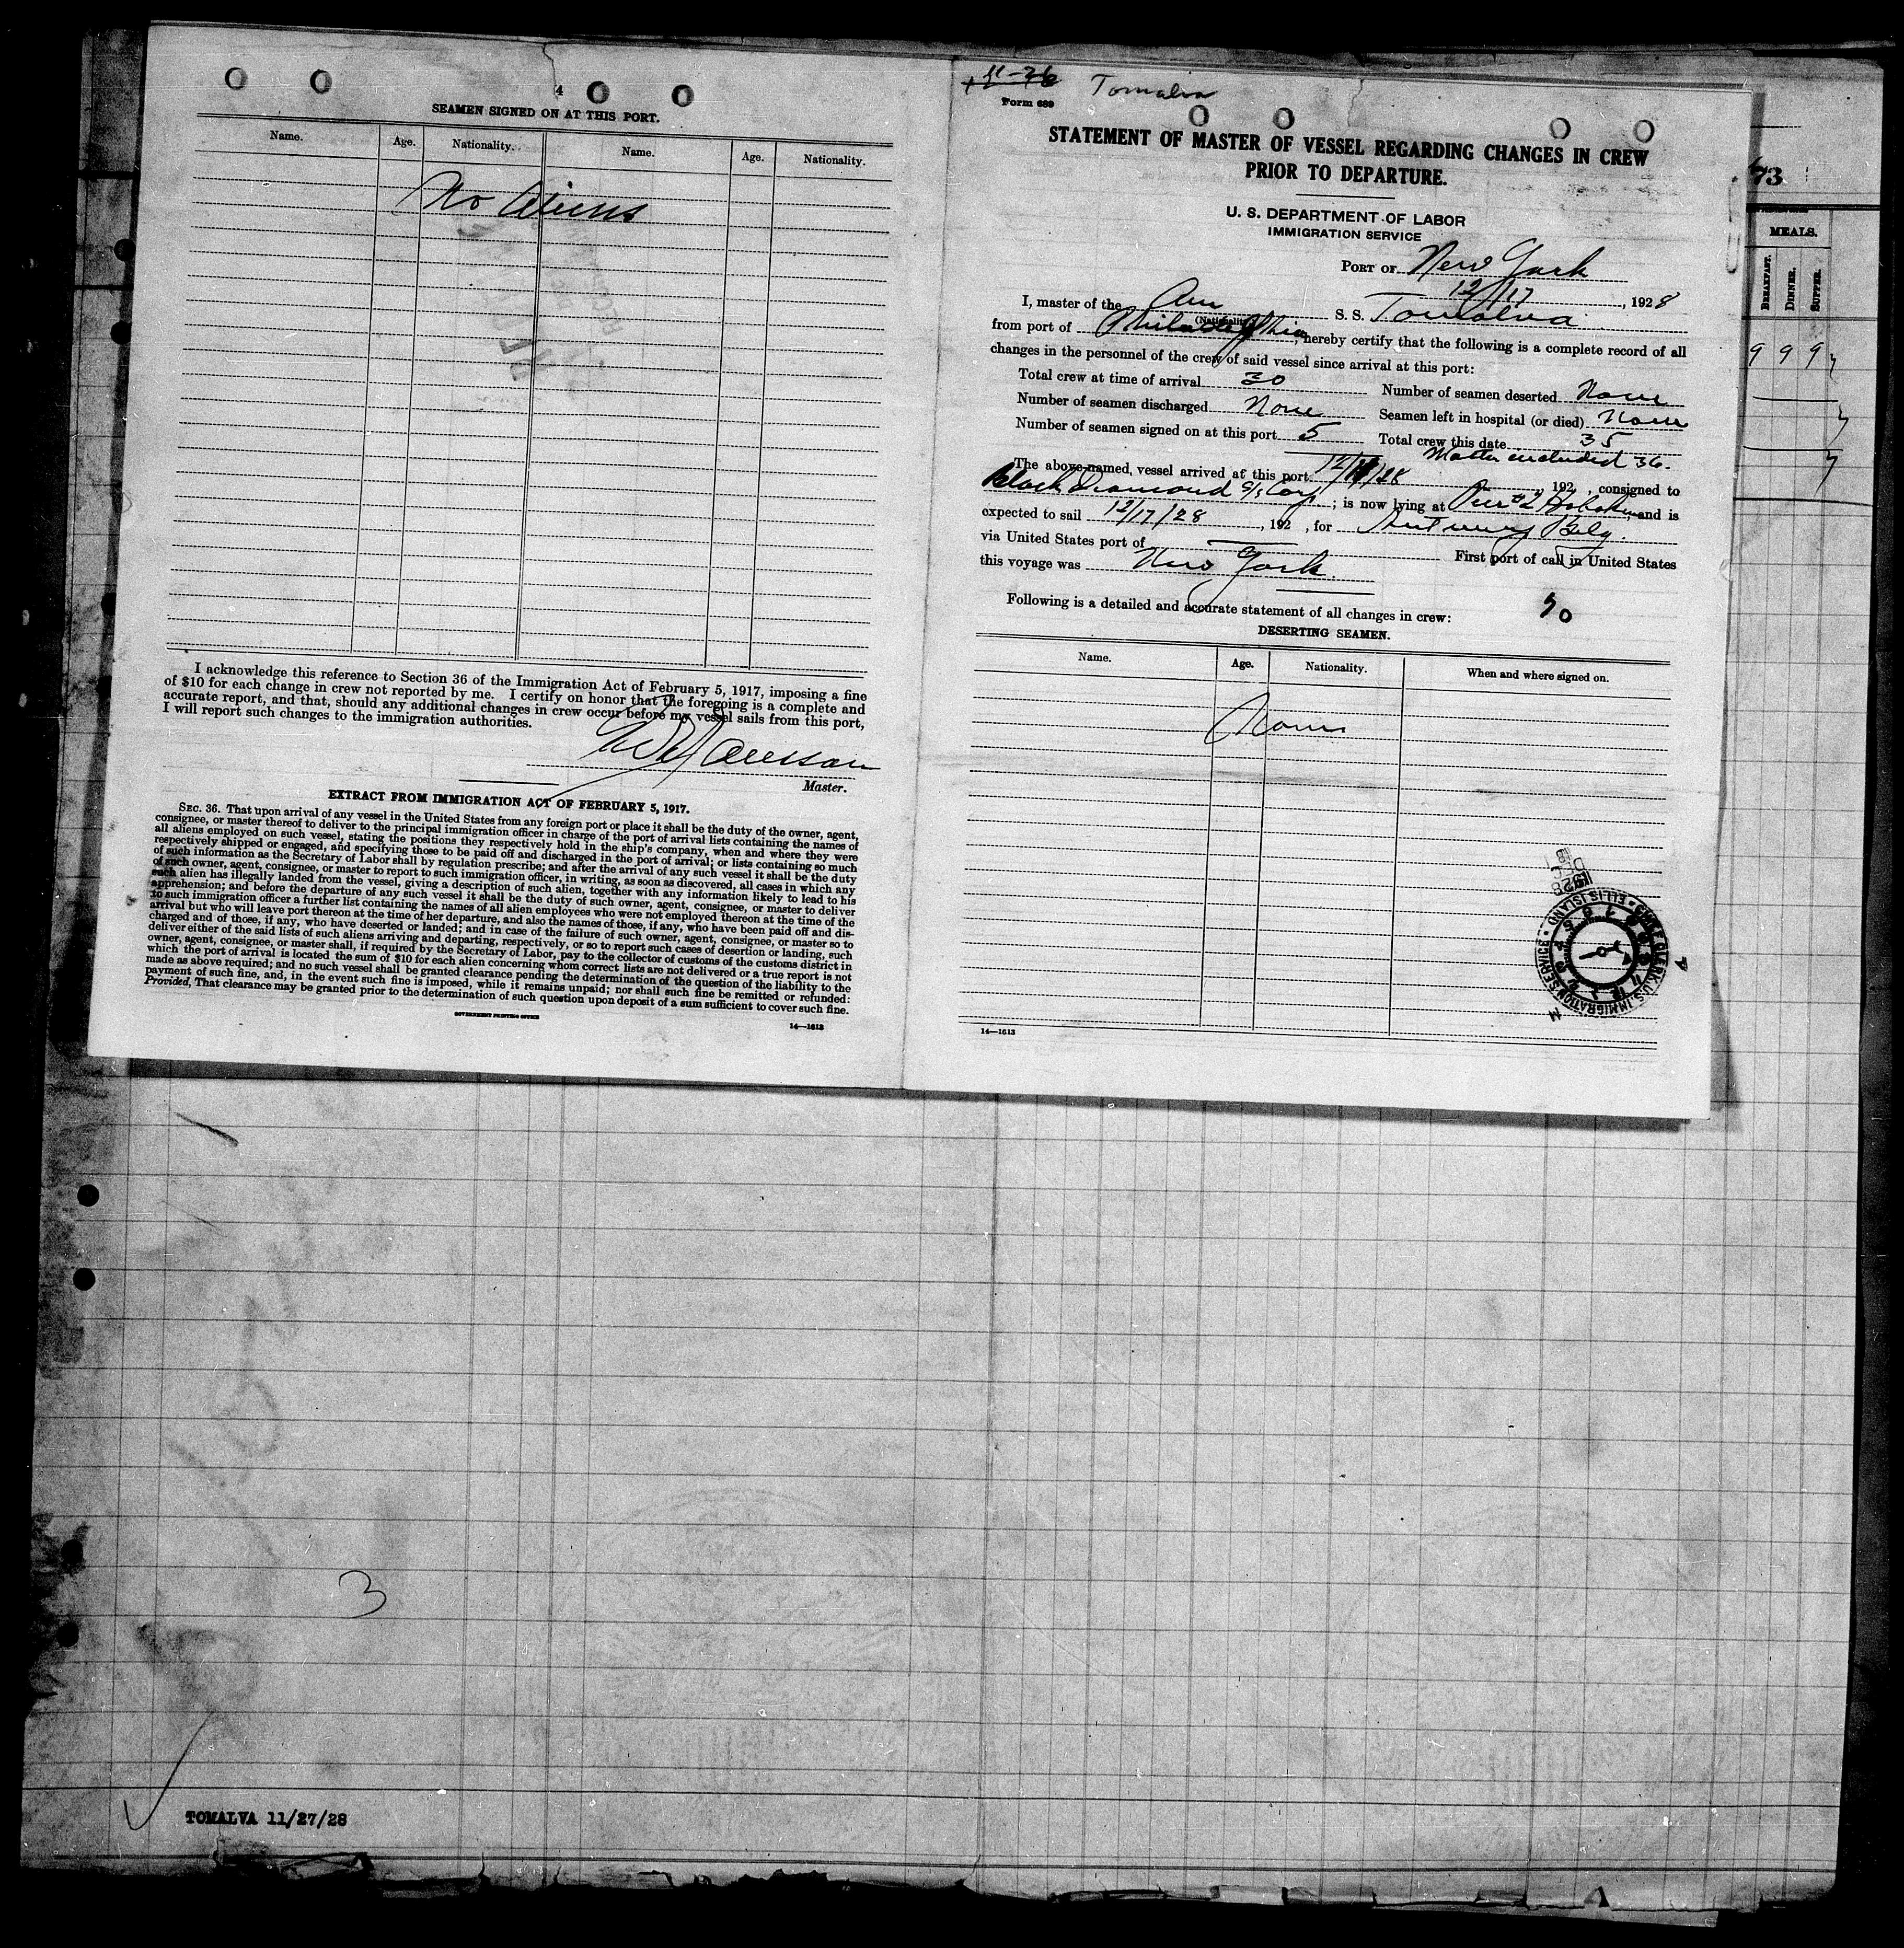 4
SEAMEN SIGNED ON AT THIS PORT.
Name. Age. Nationality. Name. Age. Nationality.
No Aliens
I acknowledge this reference to Section 36 of the Immigration Act of February 5, 1917, imposing a fine
of $10 for each change in crew not reported by me. I certify on honor that the foregoing is a complete and
accurate report, and that, should any additional changes in crew occur before my vessel sails from this port,
I will report such changes to the immigration authorities.
Master.
EXTRACT FROM IMMIGRATION ACT OF FEBRUARY 5, 1917.
SEC. 36. That upon arrival of any vessel in the United States from any foreign port or place it shall be the duty of the owner, agent,
consignee, or master thereof to deliver to the principal immigration officer in charge of the port of arrival lists containing the names of
all aliens employed on such vessel, stating the positions they respectively hold in the ship's company, when and where they were
respectively shipped or engaged, and specifying those to be paid off and discharged in the port of arrival; or lists containing so much
of such information as the Secretary of Labor shall by regulation prescribe; and after the arrival of any such vessel it shall be the duty
of such owner, agent, consignee, or master to report to such immigration officer, in writing, as soon as discovered, all cases in which any
such alien has illegally landed from the vessel, giving a description of such alien, together with any information likely to lead to his
apprehension; and before the departure of any such vessel it shall be the duty of such owner, agent, consignee, or master to deliver
to such immigration officer a further list containing the names of all alien employees who were not employed thereon at the time of the
arrival but who will leave port thereon at the time of her departure, and also the names of those, if any, who have been paid off and dis-
charged and of those, if any, who have deserted or landed; and in case of the failure of such owner, agent, consignee, or master so to
deliver either of the said lists of such aliens arriving and departing, respectively, or so to report such cases of desertion or landing, such
owner, agent, consignee, or master shall, if required by the Secretary of Labor, pay to the collector of customs of the customs district in
which the port of arrival is located the sum of $10 for each alien concerning whom correct lists are not delivered or a true report is not
made as above required; and no such vessel shall be granted clearance pending the determination of the question of the liability to the
payment of such fine, and, in the event such fine is imposed, while it remains unpaid; nor shall such fine be remitted or refunded:
Provided, That clearance may be granted prior to the determination of such question upon deposit of a sum sufficient to cover such fine.
GOVERNMENT PRINTING OFFICE
14—1613
Tomalva
Form 689
STATEMENT OF MASTER OF VESSEL REGARDING CHANGES IN CREW
PRIOR TO DEPARTURE.
U. S. DEPARTMENT OF LABOR
IMMIGRATION SERVICE
PORT OF New York
12/17, 1928
I, master of the Am S. S. Tomalva
(Nationality)
from port of Philadelphia, hereby certify that the following is a complete record of all
changes in the personnel of the crew of said vessel since arrival at this port:
Total crew at time of arrival 30 Number of seamen deserted None
Number of seamen discharged None Seamen left in hospital (or died) None
Number of seamen signed on at this port 5 Total crew this date 35
Master included 36.
The above-named vessel arrived at this port 12/ /28, 192 , consigned to
Black Diamond S/S Corp; is now lying at Pier #2 Hoboken, and is
expected to sail 12/17/28, 192 , for Antwerp Belg.
via United States port of First port of call in United States
this voyage was New York.
Following is a detailed and accurate statement of all changes in crew:
DESERTING SEAMEN.
Name. Age. Nationality. When and where signed on.
None
U.S. IMMIGRATION SERVICE · ELLIS ISLAND
14—1613
73
MEALS.
BREAKFAST. DINNER. SUPPER.
9 9 9
3
TOMALVA 11/27/28